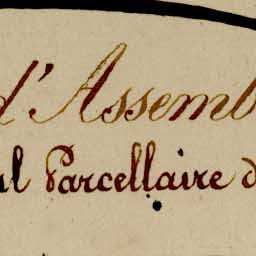 d'Assemb
ul Parcellaire d